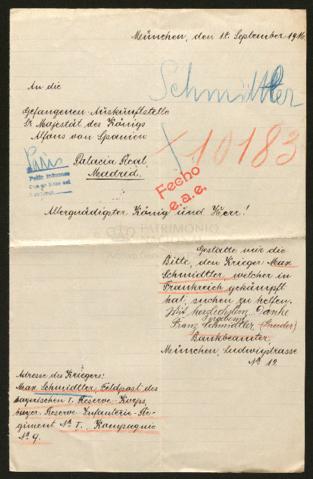 München, den 18. September 1916.
Schmidtler
An die
Gefangenen-Auskunftstelle
Sr Majestät des Königs
Alfons von Spanien
Palacio Real
Madrid.
Paris
× 10183
Fecho
e.a.e.
Allergnädigster König und Herr!
PATRIMONIO
NACIONAL
Gestatte mir die
Bitte, den Krieger Max
Schmidtler, welcher in
Frankreich gekämpft
hat, suchen zu helfen.
Mit herzlichstem Danke
Franz Schmidtler (Bruder)
Bankbeamter,
München, Ludwigstrasse
No 12
Adresse des Kriegers:
Max Schmidtler, Feldpost des
bayrischen I. Reserve-Korps,
bayer. Reserve-Infanterie-Re-
giment No 1, Kompagnie
No 9.